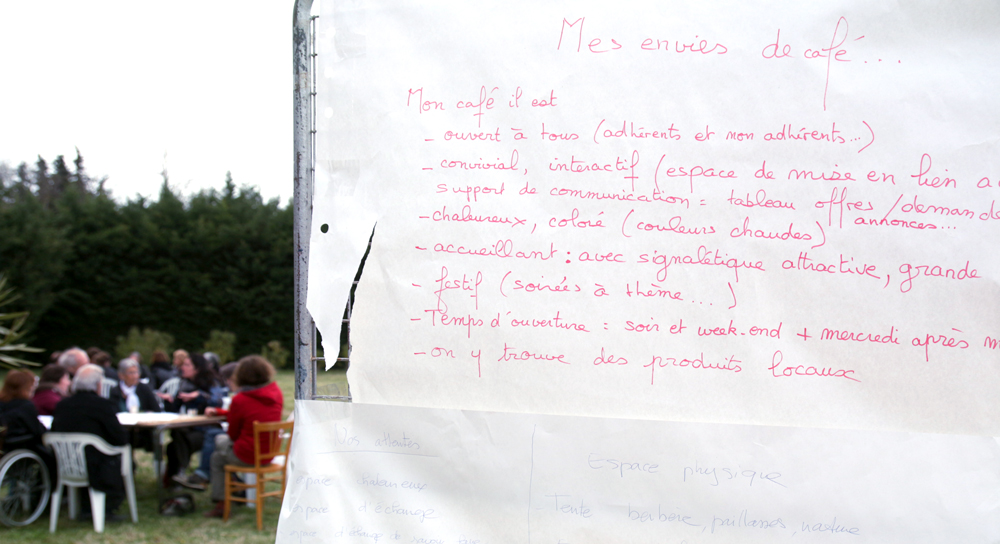 Mes envies de café...
Mon café il est
- ouvert à tous (adhérents et non adhérents...)
- convivial, interactif (espace de mise en lien a
support de communication = tableau offres/demand
annonces...
- chaleureux, coloré (couleurs chaudes)
- accueillant : avec signalétique attractive, grande
- festif (soirées à thème...)
- Temps d'ouverture = soir et week-end + mercredi après m
- on y trouve des produits locaux
Vos attentes
espace chaleureux
espace d'échange
Espace physique
Tente berbère, paillasses,